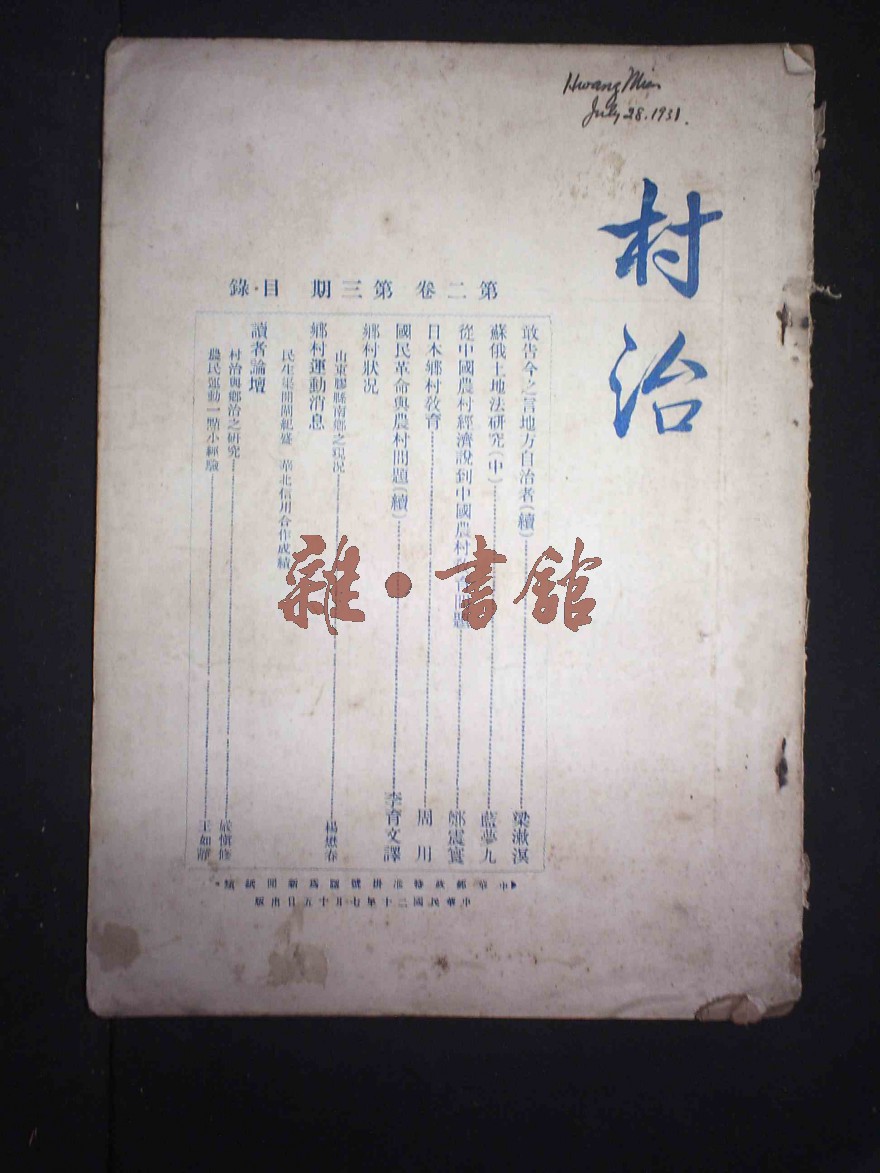 Hwang
July 28, 1931.
村治
第二卷 第三期 目·錄
敢告今之言地方自治者(續) 梁漱溟
蘇俄土地法研究(中) 藍夢九
從中國農村經濟說到中國農村 問題 鄭震寰
日本鄉村教育 周川
國民革命與農村問題(續) 李育文譯
鄉村狀况
山東膠縣南鄉之現况 楊懋春
鄉村運動消息
民生渠開閘紀盛 華北信用合作成績
讀者論壇
村治與鄉治之研究 嚴慎修
農民運動一點小經驗 王如
中華郵政特准掛號認為新聞紙類
中華民國二十年七月十五日出版
雜·書館